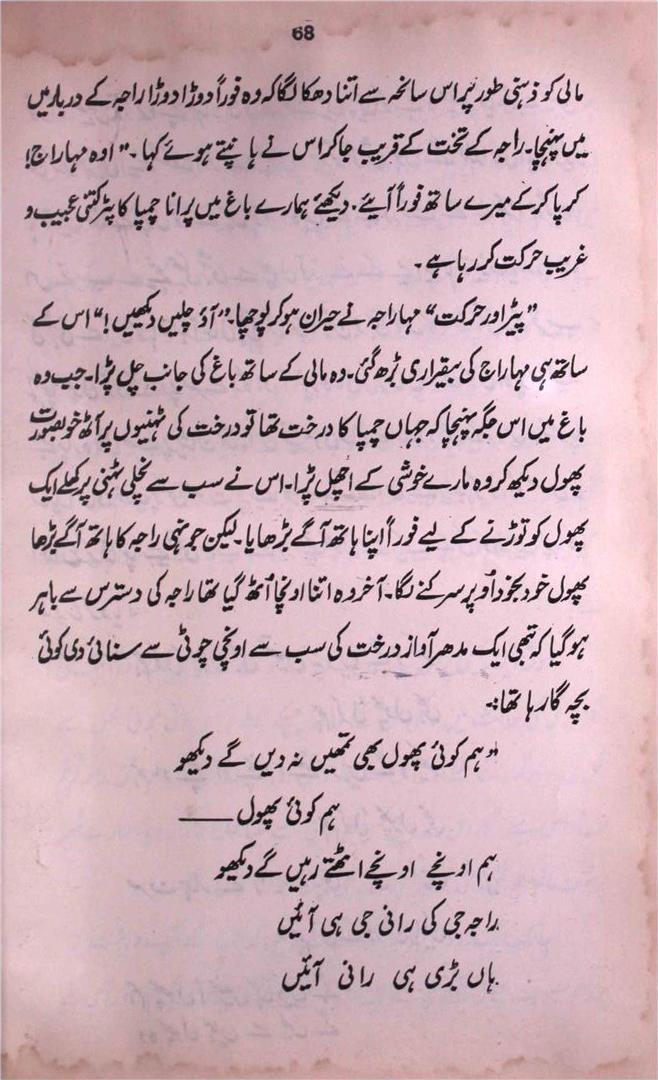 68
مالی کو ذہنی طور پر اس سانحہ سے اتنا دھکا لگا کہ وہ فوراً دوڑا دوڑا راجہ کے دربار میں
میں پہنچا۔ راجہ کے تخت کے قریب جا کر اس نے ہانپتے ہوئے کہا۔ "اوہ مہاراج!
کرپا کر کے میرے ساتھ فوراً آیئے۔ دیکھئے ہمارے باغ میں پرانا چمپا کا پیڑ کتنی عجیب و
غریب حرکت کر رہا ہے۔
"پیڑ اور حرکت" مہاراجہ نے حیران ہو کر پوچھا۔ "آؤ چلیں دیکھیں!" اس کے
ساتھ ہی مہاراج کی بیقراری بڑھ گئی۔ وہ مالی کے ساتھ باغ کی جانب چل پڑا۔ جب وہ
باغ میں اس جگہ پہنچا کہ جہاں چمپا کا درخت تھا تو درخت کی ٹہنیوں پر آٹھ خوبصورت
پھول دیکھ کر وہ مارے خوشی کے اُچھل پڑا۔ اس نے سب سے نچلی ٹہنی پر کھلے ایک
پھول کو توڑنے کے لیے فوراً اپنا ہاتھ آگے بڑھایا۔ لیکن جونہی راجہ کا ہاتھ آگے بڑھا
پھول خود بخود اُوپر سرکنے لگا۔ آخر وہ اتنا اونچا اُٹھ گیا تھا راجہ کی دسترس سے باہر
ہو گیا کہ تبھی ایک مدھر آواز درخت کی سب سے اونچی چوٹی سے سنائی دی کوئی
بچہ گا رہا تھا:۔
"ہم کوئی پھول بھی تمھیں نہ دیں گے دیکھو
ہم کوئی پھول ——
ہم اونچے اونچے اٹھتے رہیں گے دیکھو
راجہ جی کی رانی جی ہی آئیں
ہاں بڑی ہی رانی آئیں